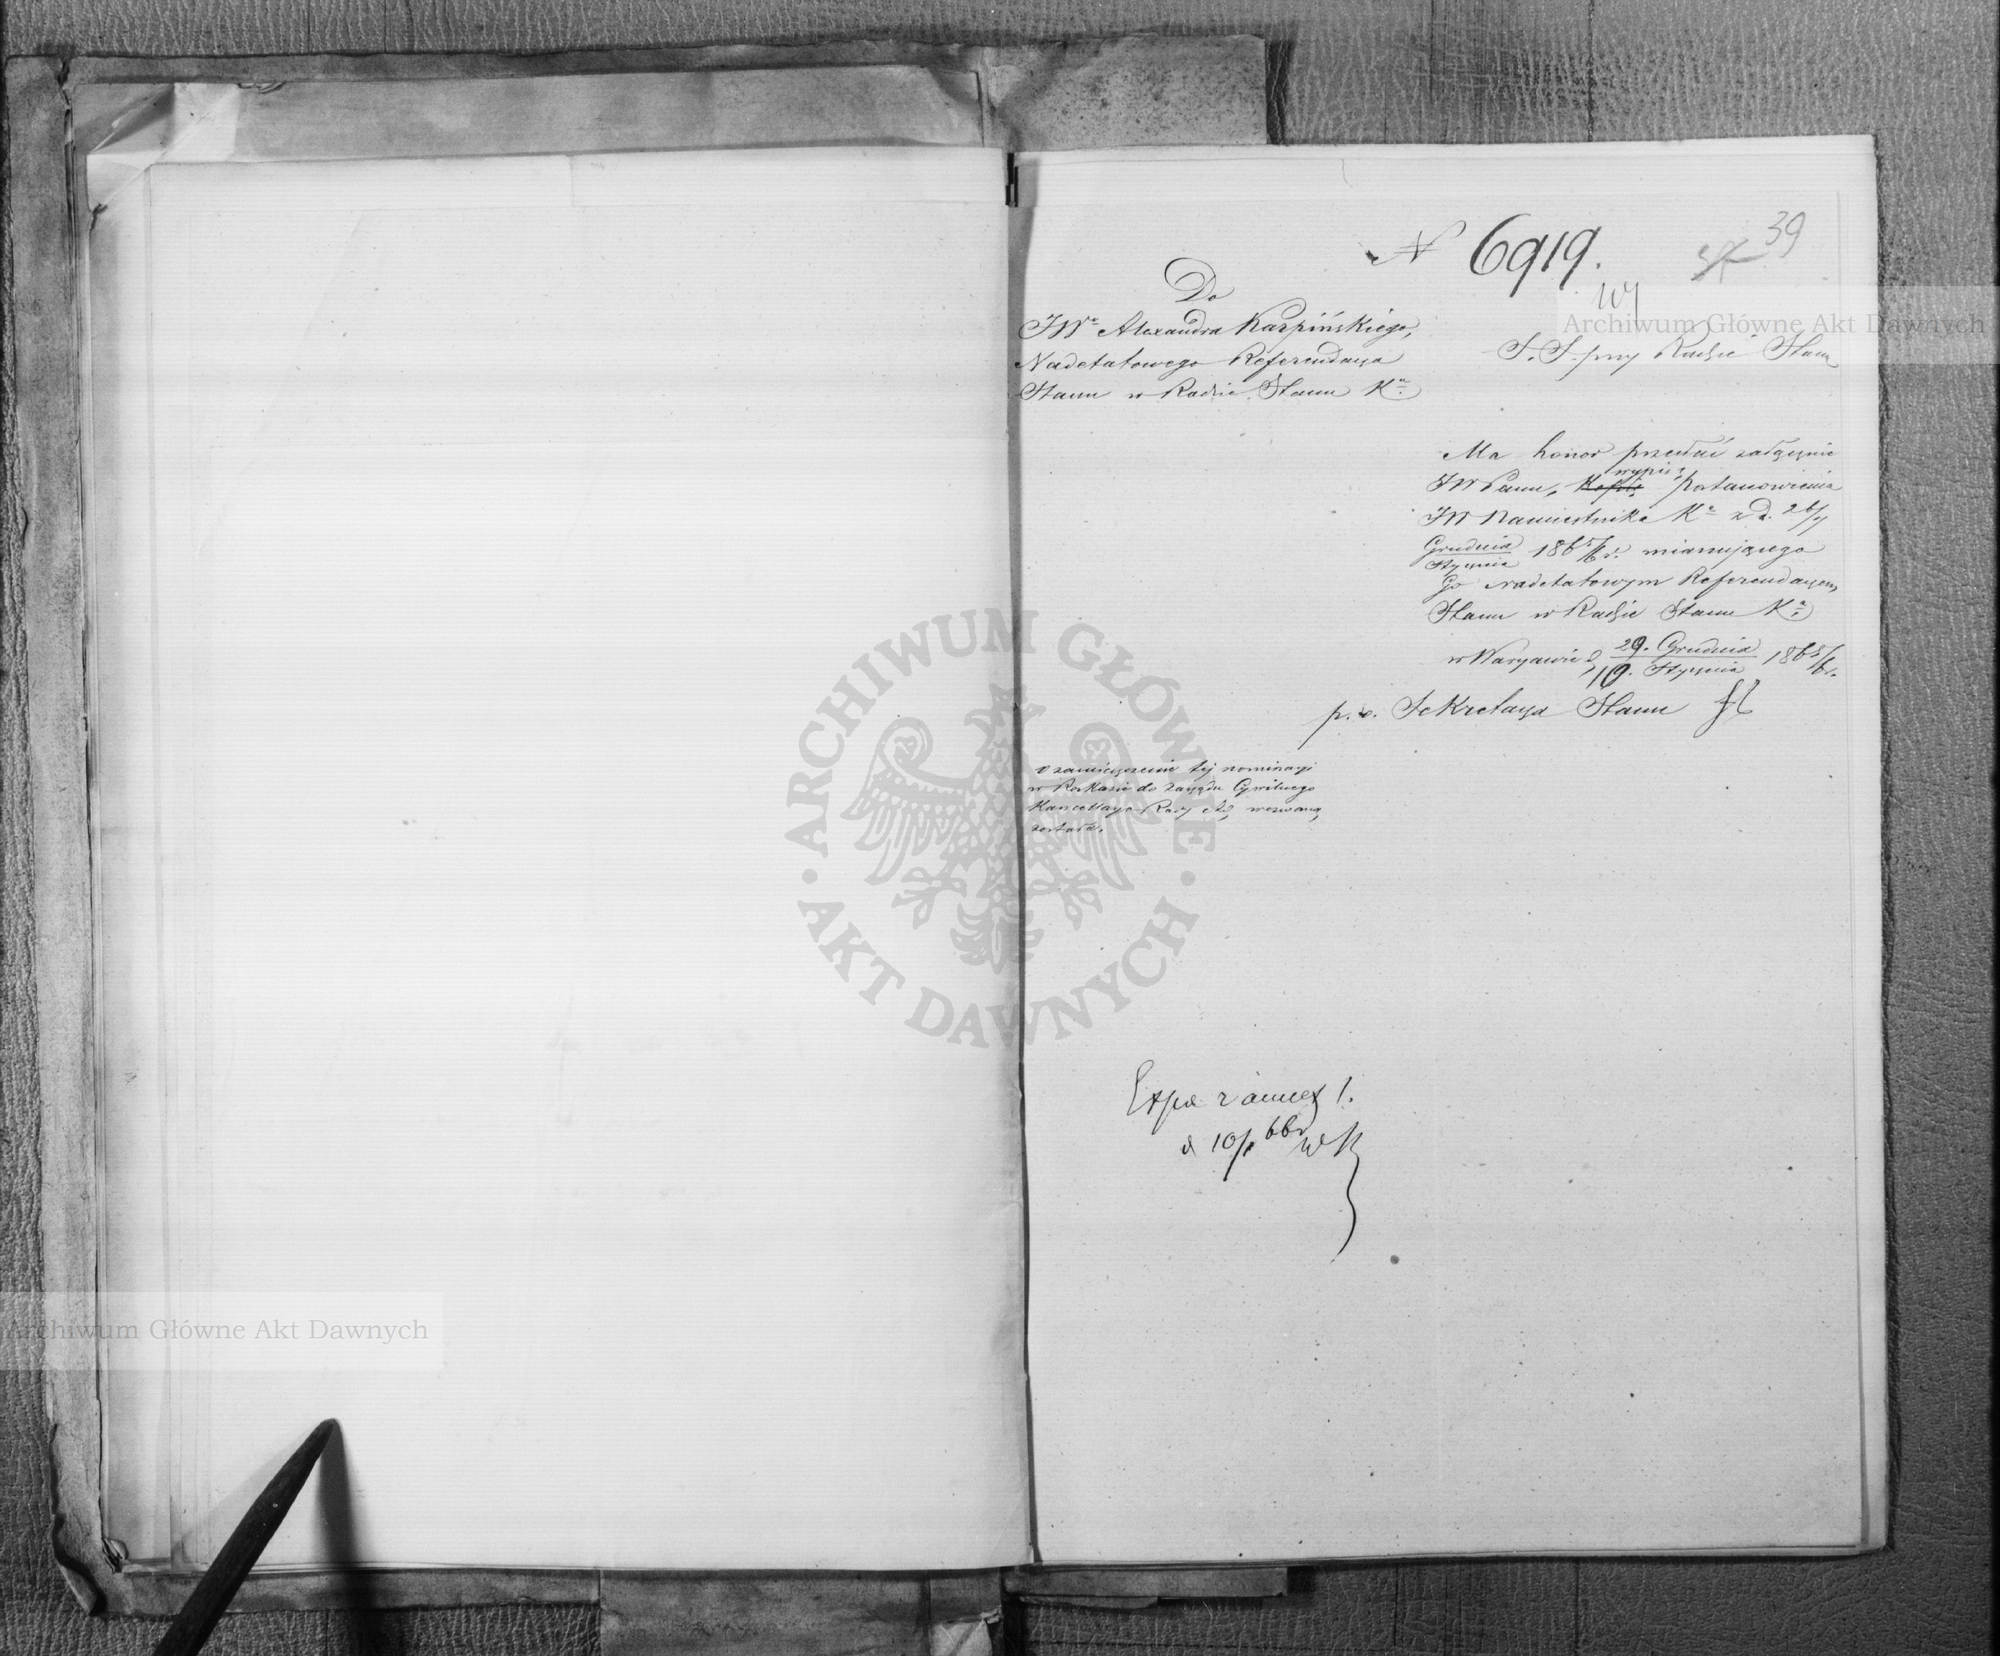 39
N 6919.
Do
JW^o Alexandra Karpińskiego,
Nadetatowego Referendarza
Stanu w Radzie Stanu K^a
S. S. przy Radzie Stanu
Ma honor przesłać załącznie
JW Panu, Kopię wypis z Postanowienia
JW Namiestnika K^a z d. 26/7
Grudnia/Stycznia 1865/6 r. mianującego
Go Nadetatowym Referendarzem
Stanu w Radzie Stanu K^a
w Warszawie d. 29. Grudnia/10. Stycznia 1865/6 r.
p. o. Sekretarza Stanu
O zamieszczenie tej nominacyi
w Rozkazie do Zarządu Cywilnego
Kancellarya Rady Ad. wezwaną
została.
1.
d 10/1 66 r
ARCHIWUM GŁÓWNE
AKT DAWNYCH
Archiwum Główne Akt Dawnych
Archiwum Główne Akt Dawnych